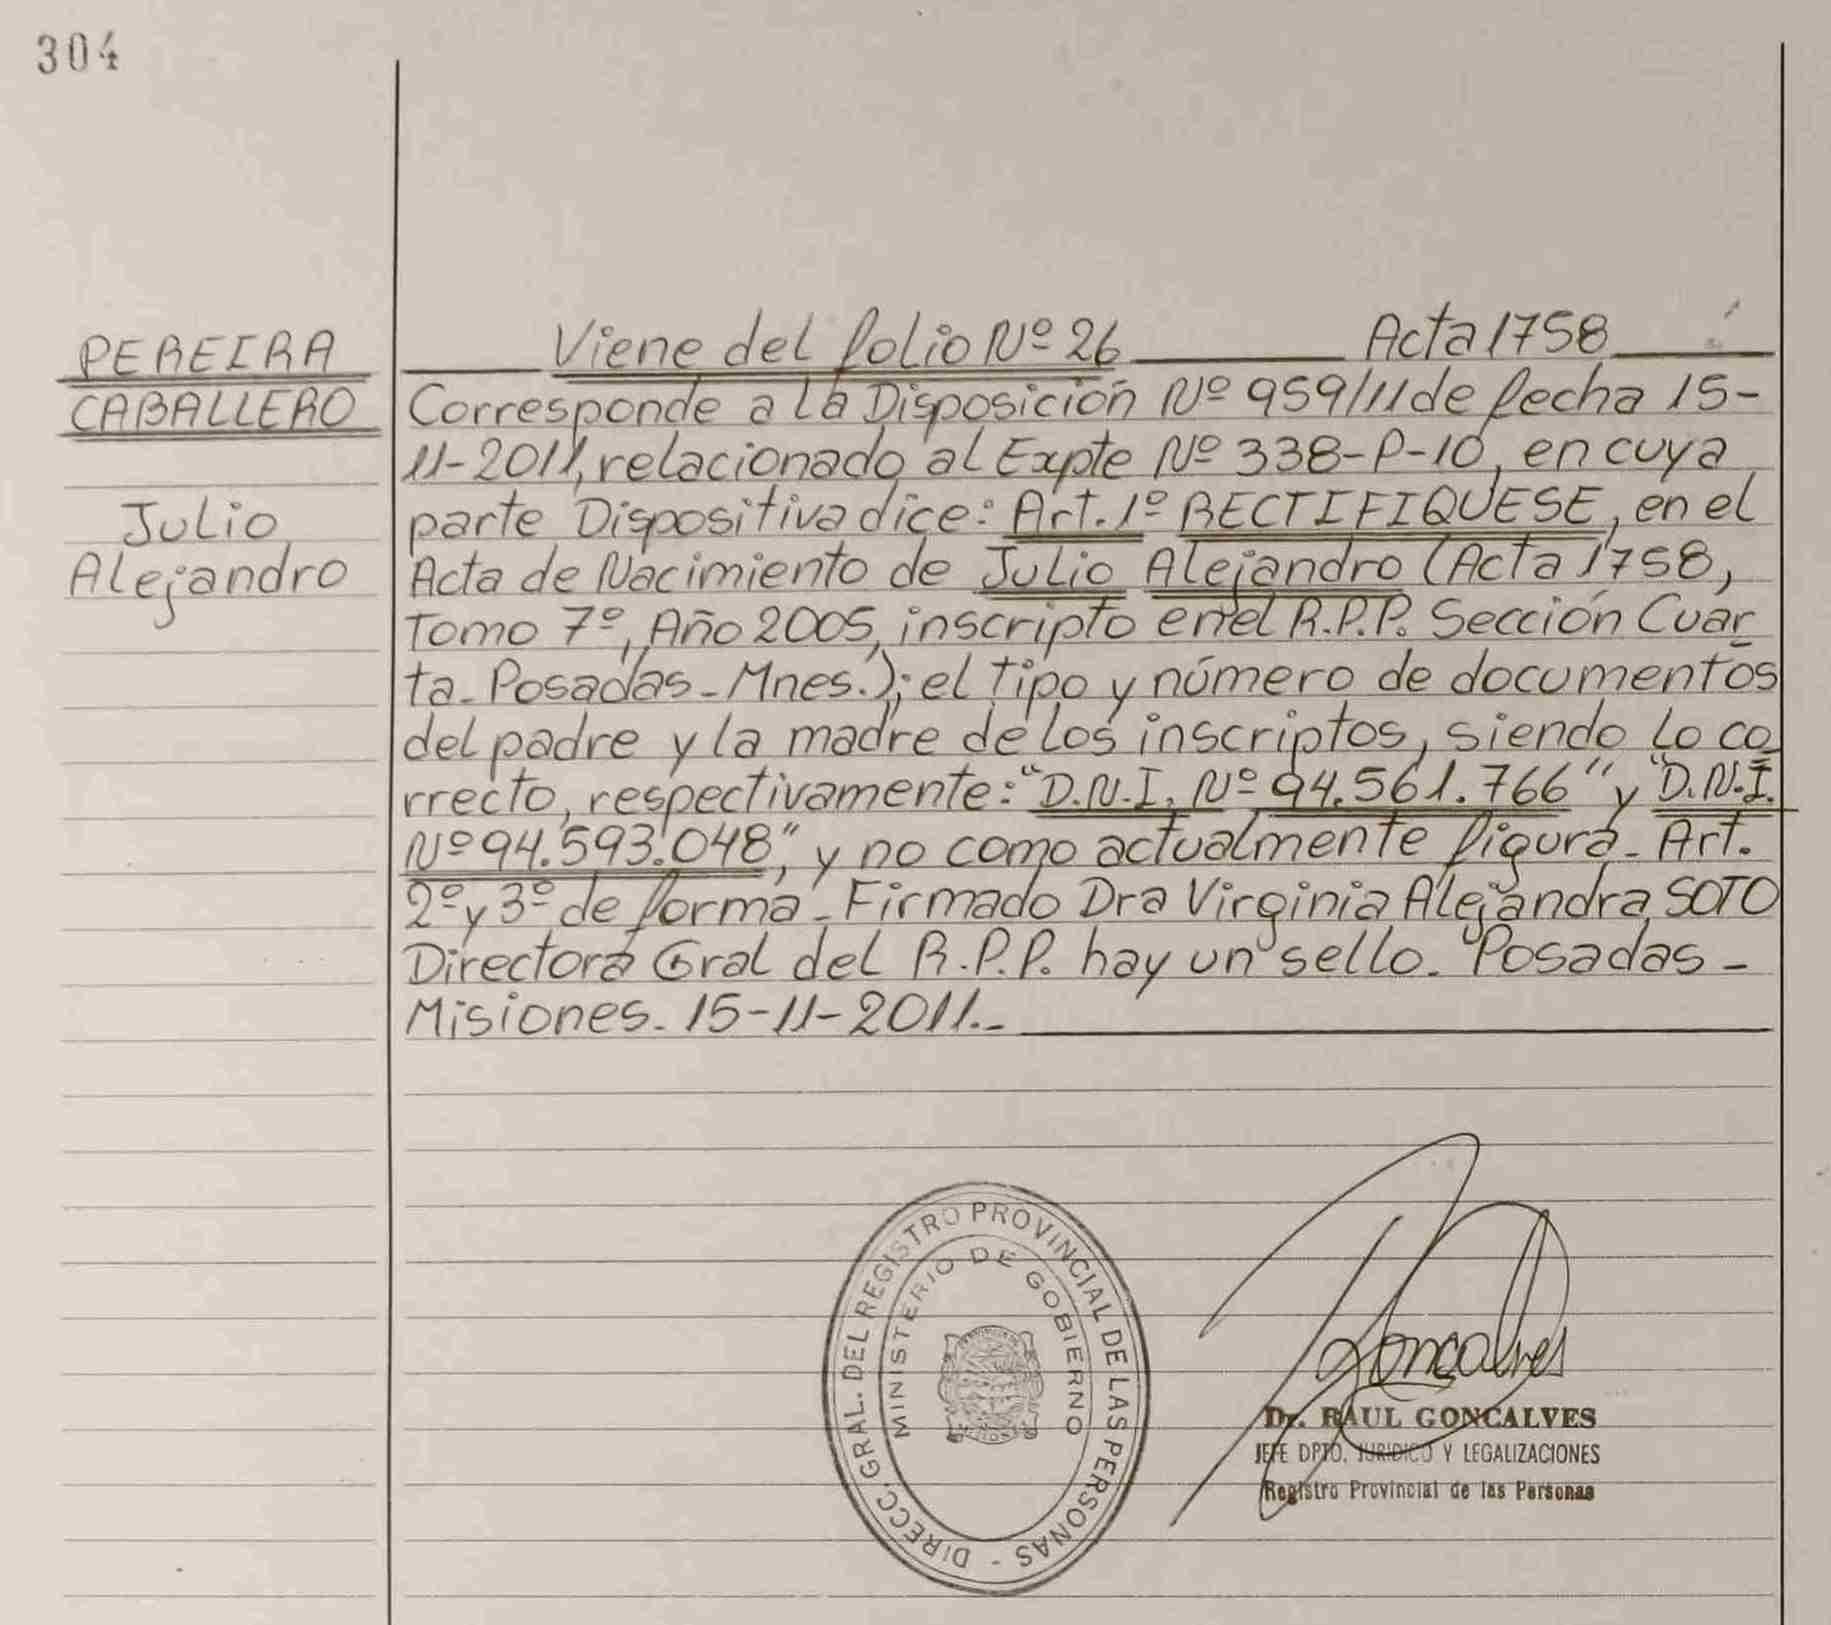 304
PEREIRA
CABALLERO
Julio
Alejandro
Viene del folio Nº 26 Acta 1758
Corresponde a la Disposición Nº 959/11 de fecha 15-
11-2011, relacionado al Expte Nº 338-P-10, en cuya
parte Dispositiva dice: Art. 1º RECTIFIQUESE, en el
Acta de Nacimiento de Julio Alejandro (Acta 1758,
Tomo 7º, Año 2005, inscripto en el R.P.P. Sección Cuar
ta - Posadas - Mnes.); el tipo y número de documentos
del padre y la madre de los inscriptos, siendo lo co
rrecto, respectivamente: "D.N.I. Nº 94.561.766" y "D.N.I.
Nº 94.593.048", y no como actualmente figura - Art.
2º y 3º de forma - Firmado Dra Virginia Alejandra SOTO
Directora Gral del R.P.P. hay un sello - Posadas -
Misiones - 15-11-2011.-
DIRECC. GRAL. DEL REGISTRO PROVINCIAL DE LAS PERSONAS -
MINISTERIO DE GOBIERNO
Goncalves
Dr. RAUL GONCALVES
JEFE DPTO. JURIDICO Y LEGALIZACIONES
Registro Provincial de las Personas